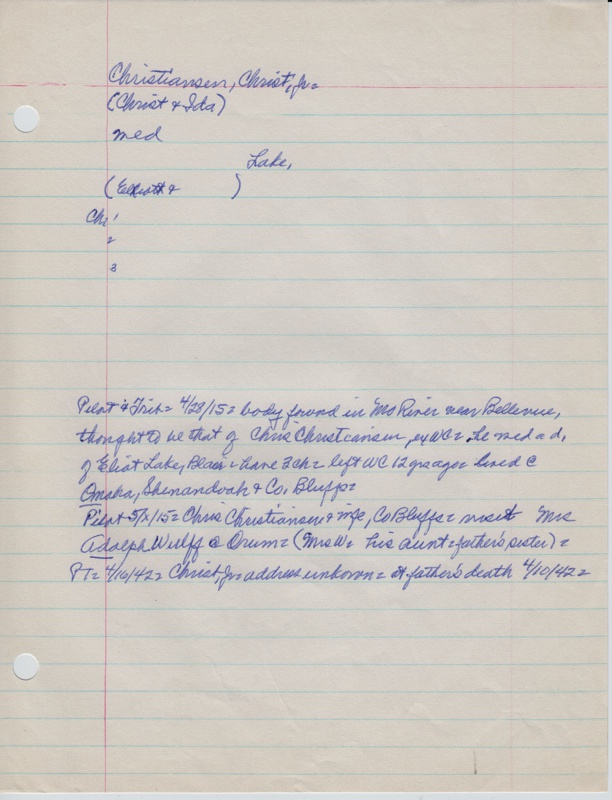 Christiansen, Christ, Jr =
(Christ & Ida)
med
Lake,
(Elliott & )
Ch 1
2
3
Pilot & Trib = 4/28/15 = body found in Mo River near Bellevue,
thought to be that of Chris Christiansen, ex WC = he med a d,
of Eliot Lake, Blair = have 3 ch = left WC 12 yrs ago = lived @
Omaha, Shenandoah & Co. Bluffs =
Pilot 5/ /15 = Chris Christiansen & wife, Co Bluffs = visit Mrs
Adolph Wulff @ Orum = (Mrs W = his aunt = father's sister) =
PT = 4/16/42 = Christ, Jr = address unkown = at father's death 4/10/42 =